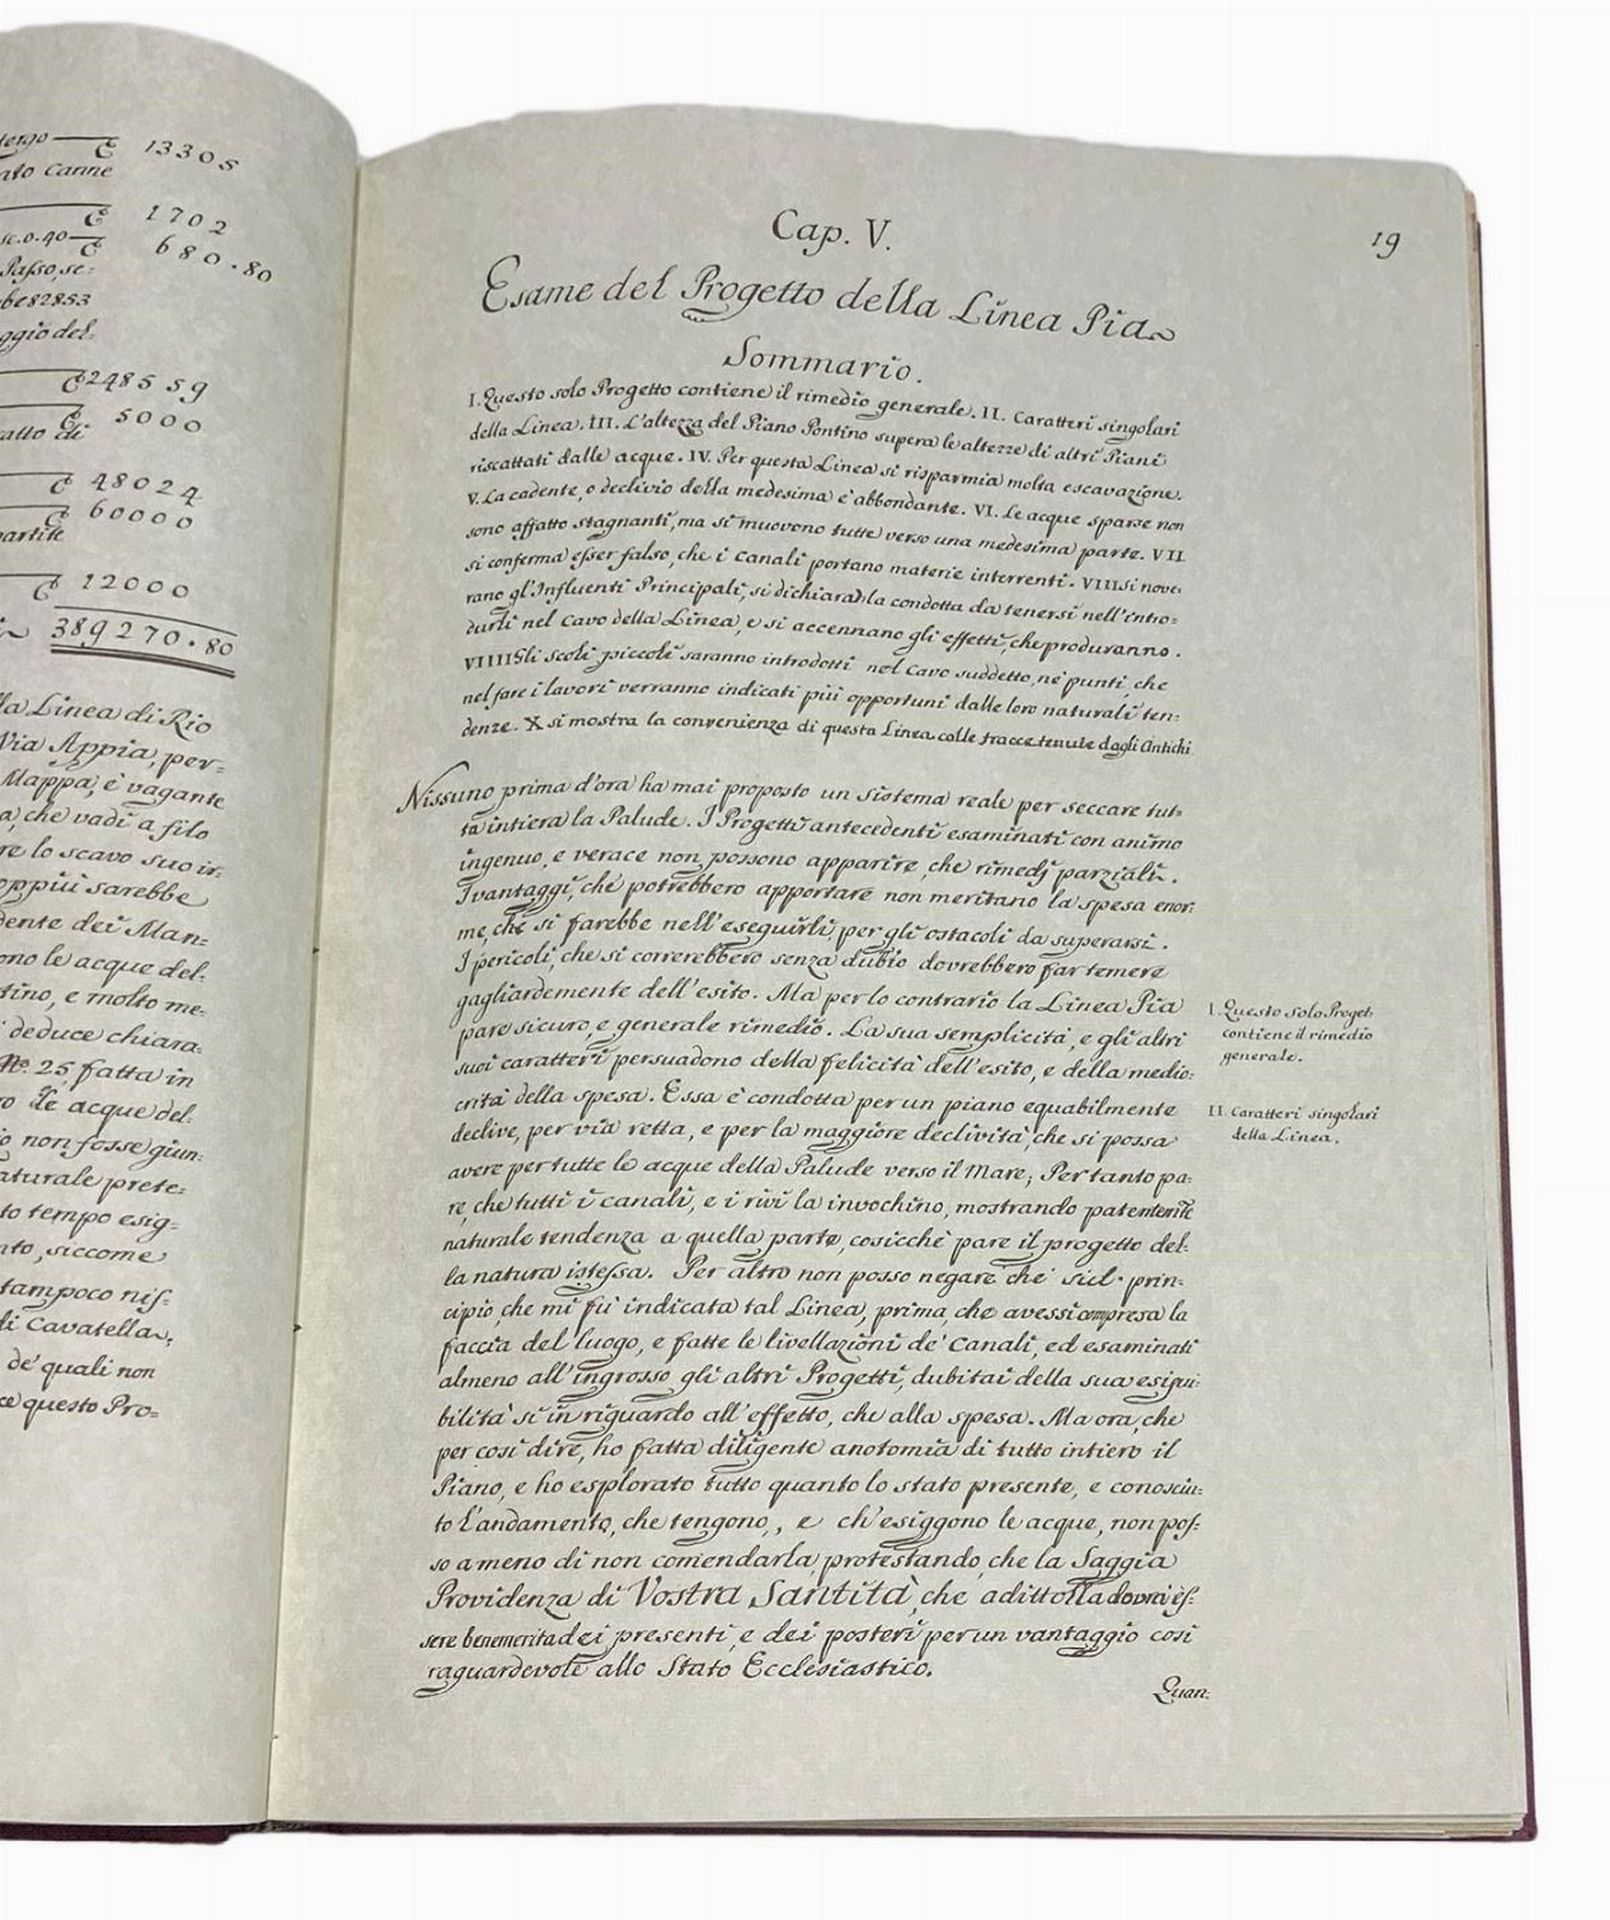 tergo 13305
ato Canne
1702
sc. 0.40 680.80
Passo, se:
be 82853
ggio del:
2485 59
5000
atto di
48024
60000
partite
12000
389270.80
la Linea di Rio
Via Appia, per=
Mappa, è vagante
a, che vadi a filo
re lo scavo suo ir:
oppiù sarebbe
dente dei Man=
ono le acque del:
tino, e molto me:
deduce chiara:
No. 25 fatta in
ro le acque del:
io non fosse giun:
aturale prete:
to tempo esig=
nto, siccome
tampoco nis:
di Cavatella;
de' quali non
ce questo Pro=
19
Cap. V.
Esame del Progetto della Linea Pia
Sommario.
I. Questo solo Progetto contiene il rimedio generale. II. Caratteri singolari
della Linea. III. L'altezza del Piano Pontino supera le altezze di altri Piani
riscattati dalle acque. IV. Per questa Linea si risparmia molta escavazione.
V. La cadente, o declivio della medesima è abbondante. VI. Le acque sparse non
sono affatto stagnanti, ma si muovono tutte verso una medesima parte. VII.
si conferma esser falso, che i Canali portano materie interrenti. VIII Si nove:
rano gl'Influenti Principali, si dichiara la condotta da tenersi nell'intro=
durli nel Cavo della Linea, e si accennano gli effetti, che produranno.
VIIII Gli Scoli piccoli saranno introdotti nel Cavo suddetto, ne' punti, che
nel fare i lavori verranno indicati più opportuni dalle loro naturali ten:
denze. X si mostra la convenienza di questa Linea colle tracce tenute dagli Antichi
Nissuno prima d'ora ha mai proposto un Sistema reale per seccare tut=
ta intiera la Palude. I Progetti antecedenti esaminati con animo
ingenuo, e verace non possono apparire, che rimedj parziali.
I vantaggi, che potrebbero apportare non meritano la spesa enor:
me, che si farebbe nell'eseguirli, per gli ostacoli da superarsi.
I pericoli, che si correrebbero senza dubio dovrebbero far temere
gagliardemente dell'esito. Ma per lo contrario la Linea Pia
pare sicuro, e generale rimedio. La sua semplicità, e gli altri
suoi caratteri persuadono della felicità dell'esito, e della medio:
crità della spesa. Essa è condotta per un piano equabilmente
declive, per via retta, e per la maggiore declività, che si possa
avere per tutte le acque della Palude verso il Mare; Per tanto pa:
re, che tutti i canali, e i rivi la invochino, mostrando patentemte
naturale tendenza a quella parte, cosicchè pare il progetto del:
la natura istessa. Per altro non posso negare che sul prin:
cipio, che mi fù indicata tal Linea, prima, che avessi compresa la
faccia del luogo, e fatte le livellazioni de' Canali, ed esaminati
almeno all'ingrosso gli altri Progetti, dubitai della sua esigui:
bilità si in riguardo all'effetto, che alla spesa. Ma ora, che
per così dire, ho fatta diligente anotomia di tutto intiero il
Piano, e ho esplorato tutto quanto lo stato presente, e conosciu:
to l'andamento, che tengono, e ch'esiggono le acque, non pos:
so a meno di non comendarla, protestando, che la Saggia
Providenza di Vostra Santità, che adittolla dovrà es:
sere benemerita dei presenti, e dei posteri per un vantaggio così
raguardevole allo Stato Ecclesiastico.
Quan:
I. Questo solo Proget:
contiene il rimedio
generale.
II. Caratteri singolari
della Linea.